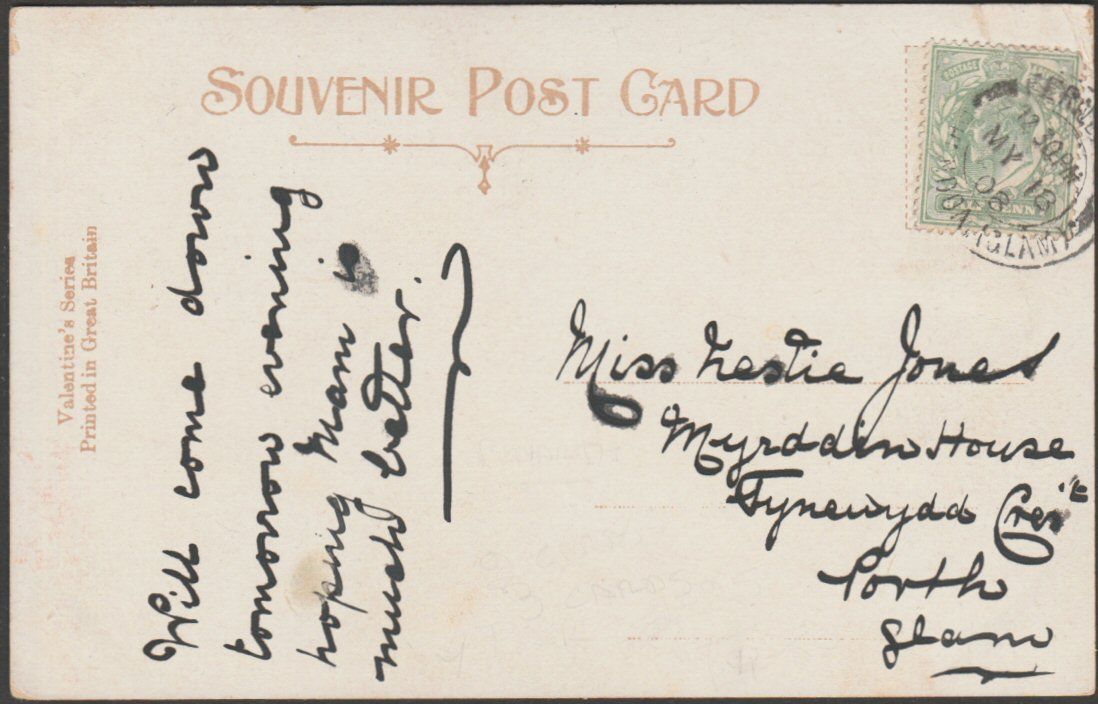 SOUVENIR POST CARD
Valentine's Series
Printed in Great Britain
Will come down
tomorow evening
hoping Mam is
much better.
Miss Lestie Jones
Myrddin House
Tynewydd Cres't
Porth
Glam
POSTAGE
12 30PM
MY 18
08
GLAM